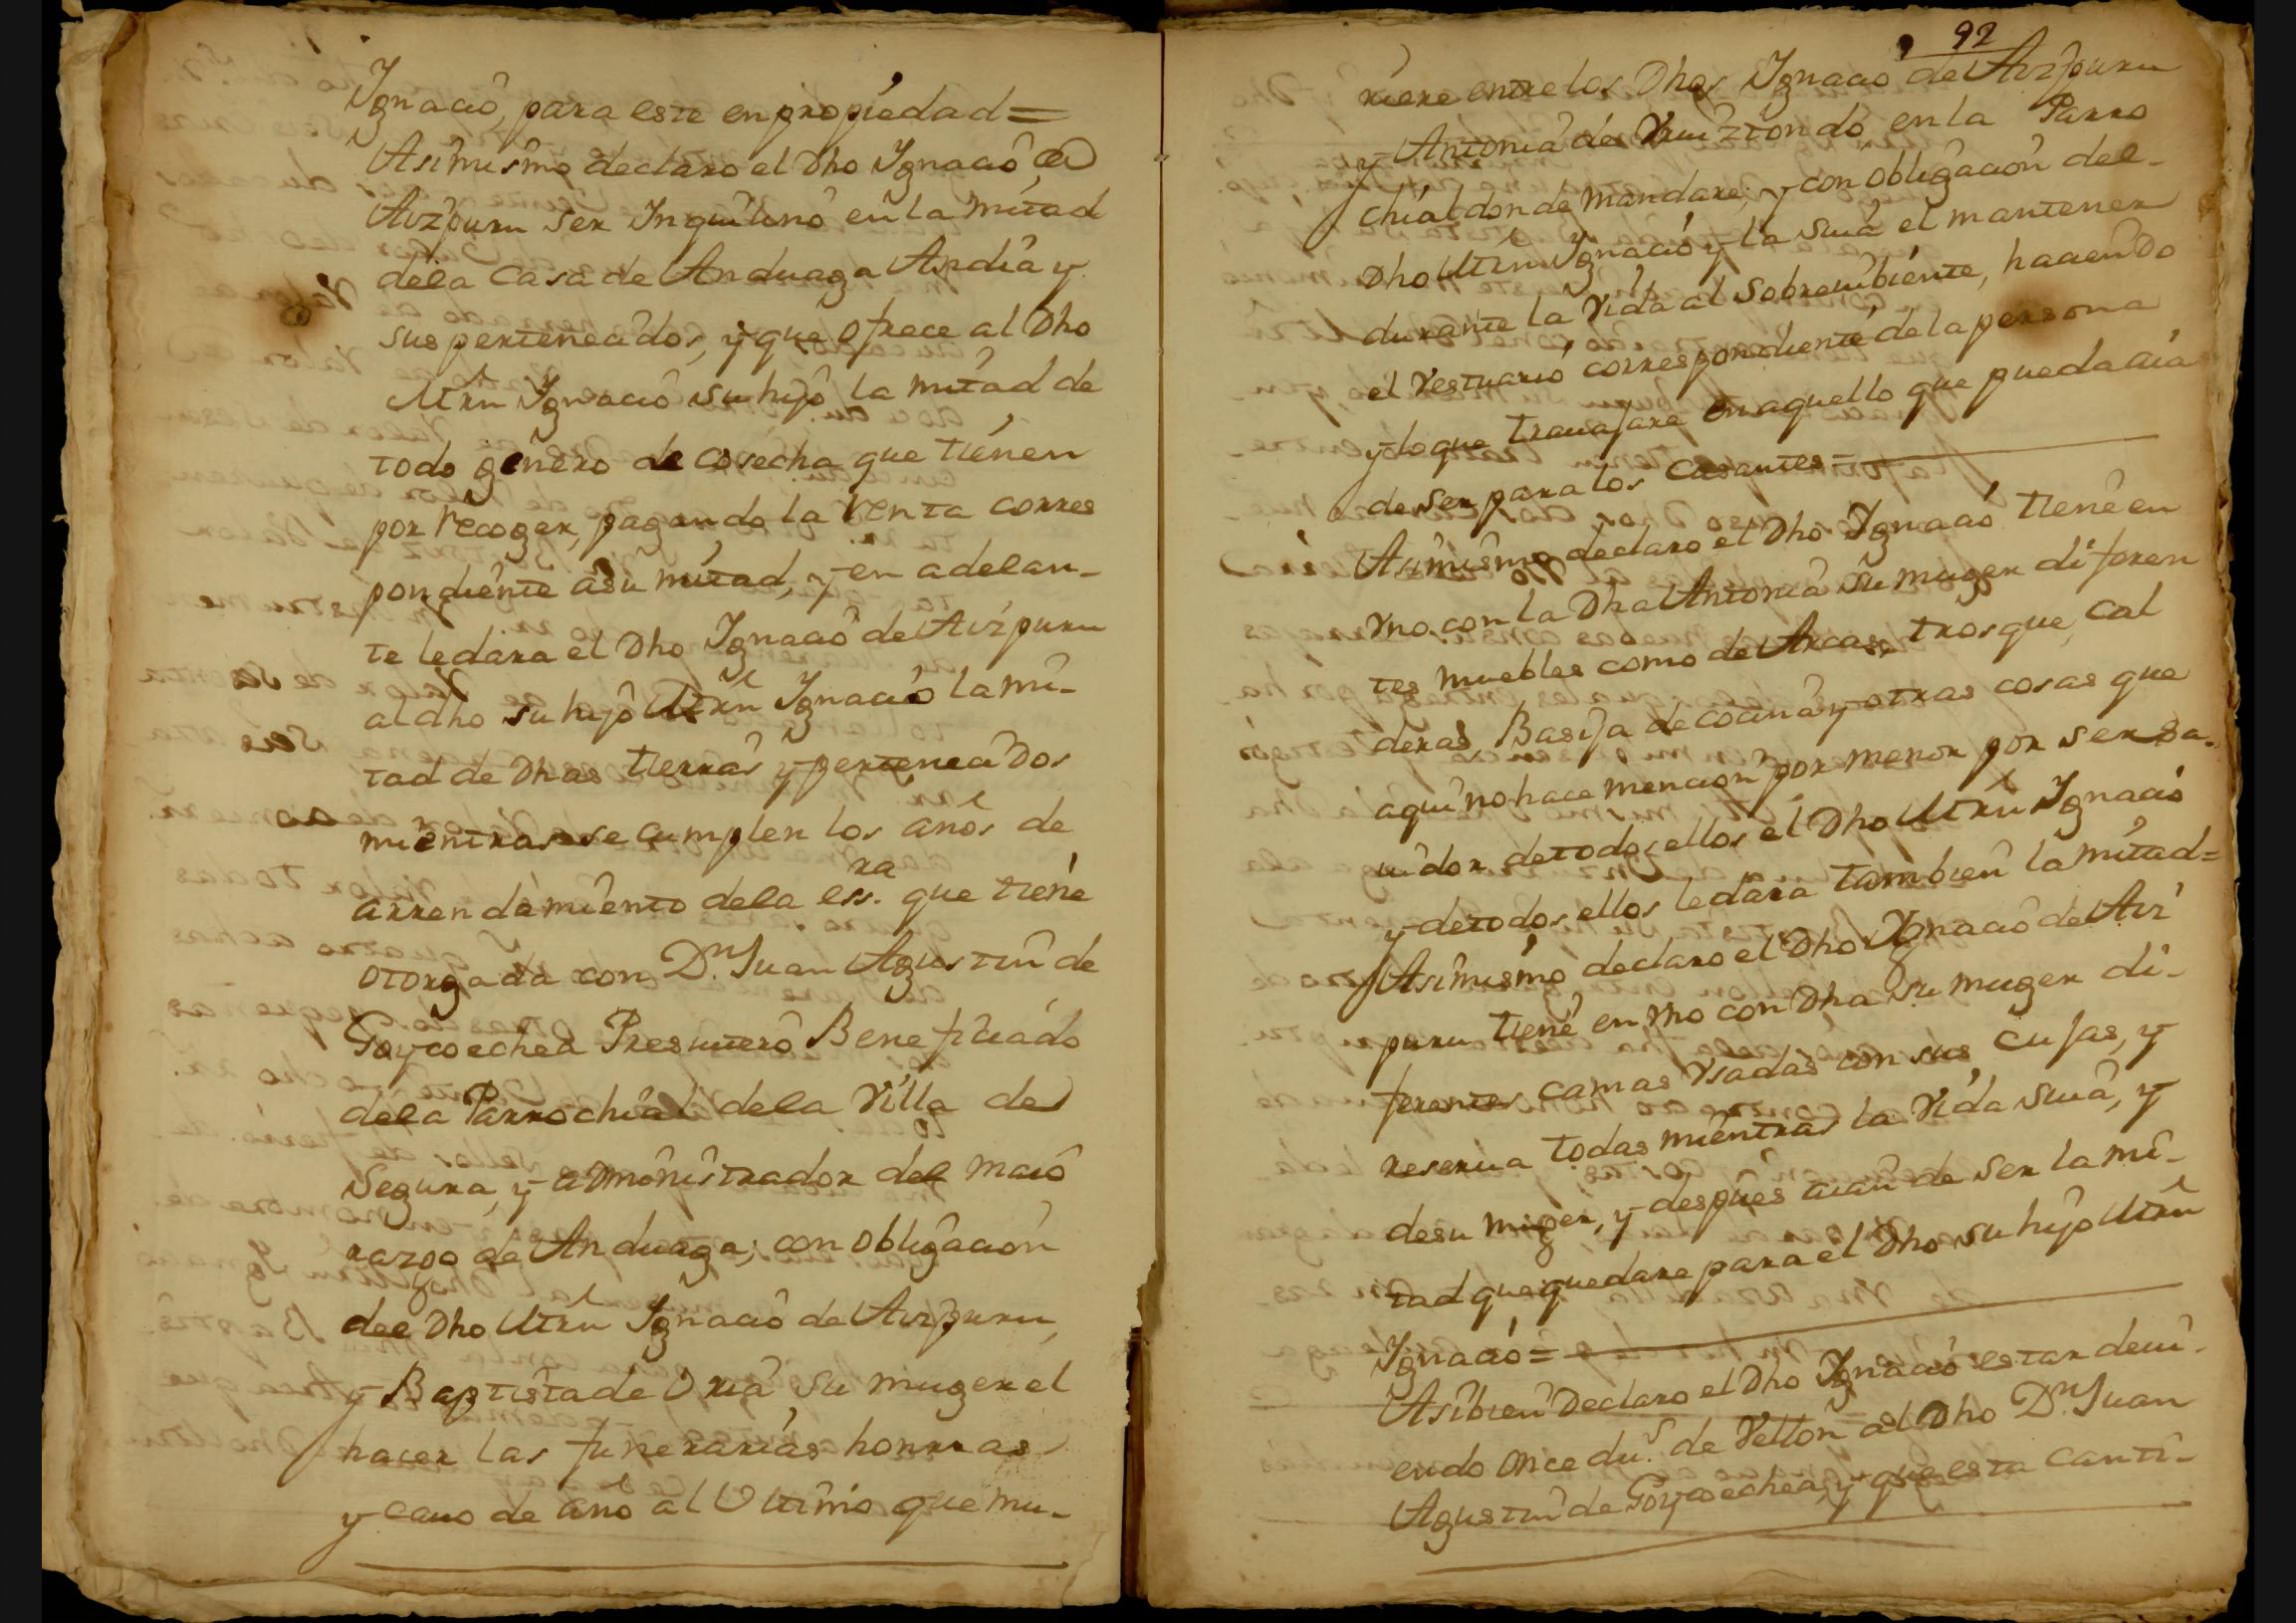 Ignacio, para este en propiedad=
Asimismo declaro el Dho Ignacio de
Aizpuru ser Inquilino en la mitad
dela Casa de Anduaga Andia y
sus pertenecidos, y que ofrece al Dho
Mrn Ignacio su hijo la mitad de
todo genero de cosecha que tienen
por recoger, pagando la renta corres
pondiente asu mitad, y en adelan-
te ledara el Dho Ignacio de Aizpuru
al dho su hijo Mrn Ignacio la mi-
tad de Dhas tierras y pertenecidos
mientras se cumplen los años de
arrendamiento dela ess.ra que tiene
otorgada con Dn. Juan Agustin de
Goycoechea Presuitero Beneficiado
dela Parrochial dela Villa de
Segura, y admonistrador del maio
razgo de Anduaga; con obligacion
del Dho Mrn Ignacio de Aizpuru,
y Baptista de Oria su muger el
hacer las funerarias honrras
y cauo de año al Ultimo que mu-
92
riere entre los Dhos Ignacio de Aizpuru
y Antonia de Vruiztondo en la Parro
chial donde mandare; y con obligacion del-
Dho Mrn Ignacio y la suia el mantener
durante la Vida al Sobreuibiente, haciendo
el Vestuario correspondiente dela persona
y lo que trauajare en aquello que pueda aia
de ser para los Casantes=
Asimismo declaro el Dho Ignacio tiene en
Vno con la Dha Antonia su muger diferen
tes muebles como de Arcas, trosque, Cal
deras, Basija de cocina y otras cosas que
aqui no hace mencion por menor por ser sa-
uidor de todos ellos el Dho Mrn Ignacio
y de todos ellos ledara tambien la mitad=
Asimismo declaro el Dho Ignacio de Aiz
puru tiene en Vno con Dha su muger di-
ferentes camas Vsadas con sus Cujas, y
reserua todas mientras la Vida suia, y
de su muger, y despues aian de ser la mi-
tad que quedare para el Dho su hijo Mrn
Ignacio=
Asibien Declaro el Dho Ignacio estar deui-
endo once du.s de Vellon al Dho Dn. Juan
Agustin de Goycoechea, y que esta canti-